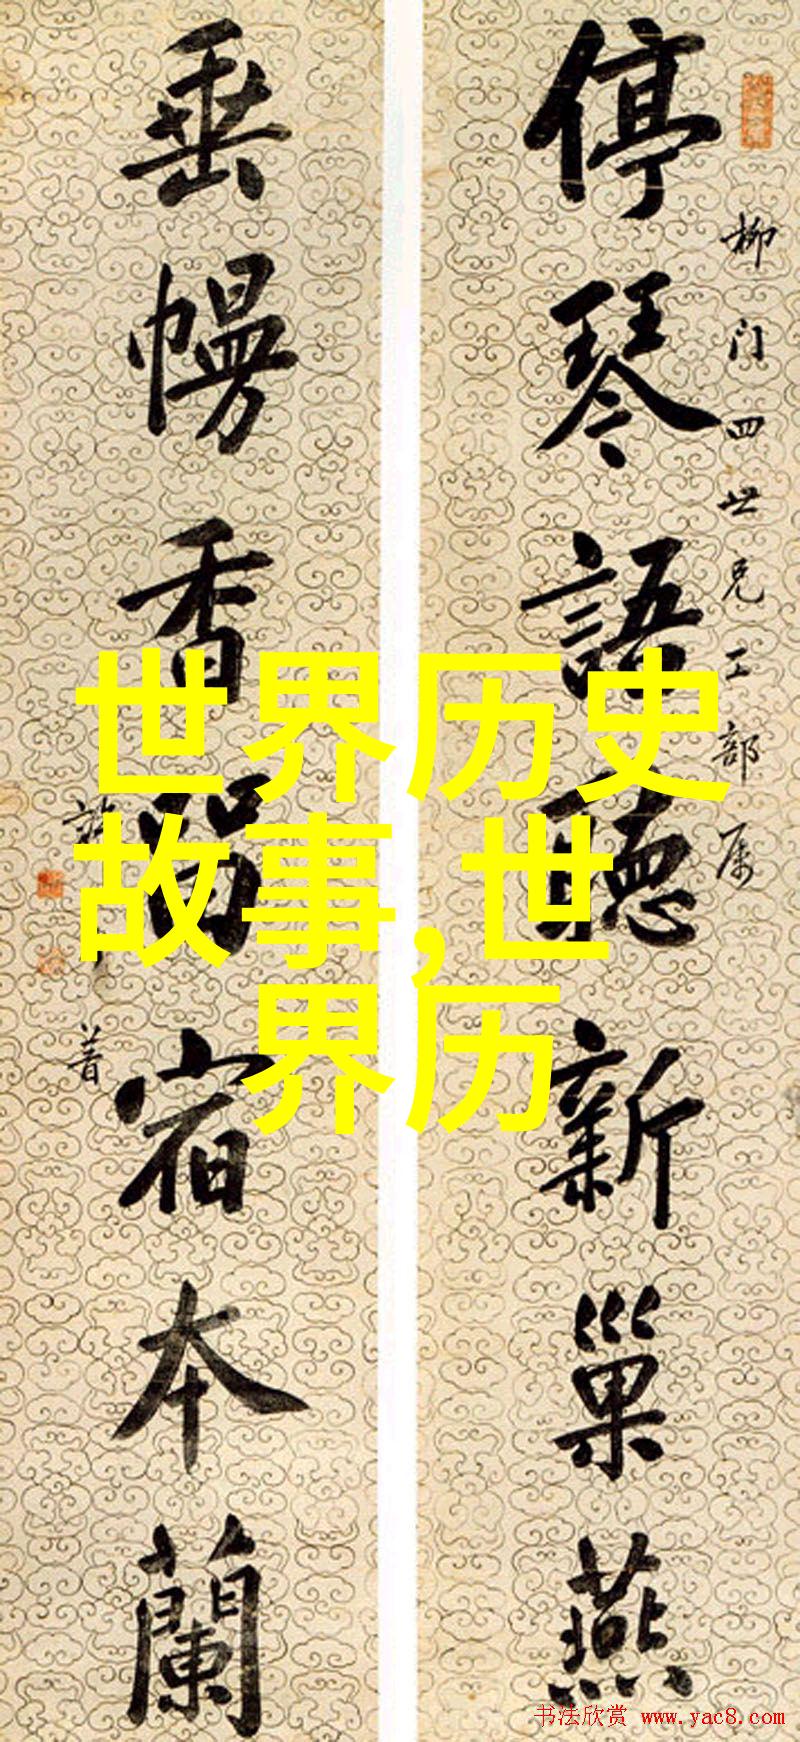 停琴語聽新巢燕
柳门四世兄工部属
垂幔香留宿本蘭
世界历史
故事,世
界历
书法欣赏 www.yac8.com